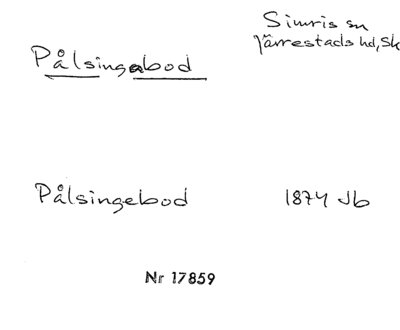 Simris sn
Järrestads hd, Sk
Pålsingabod
Pålsingebod 1874 Jb
Nr 17859